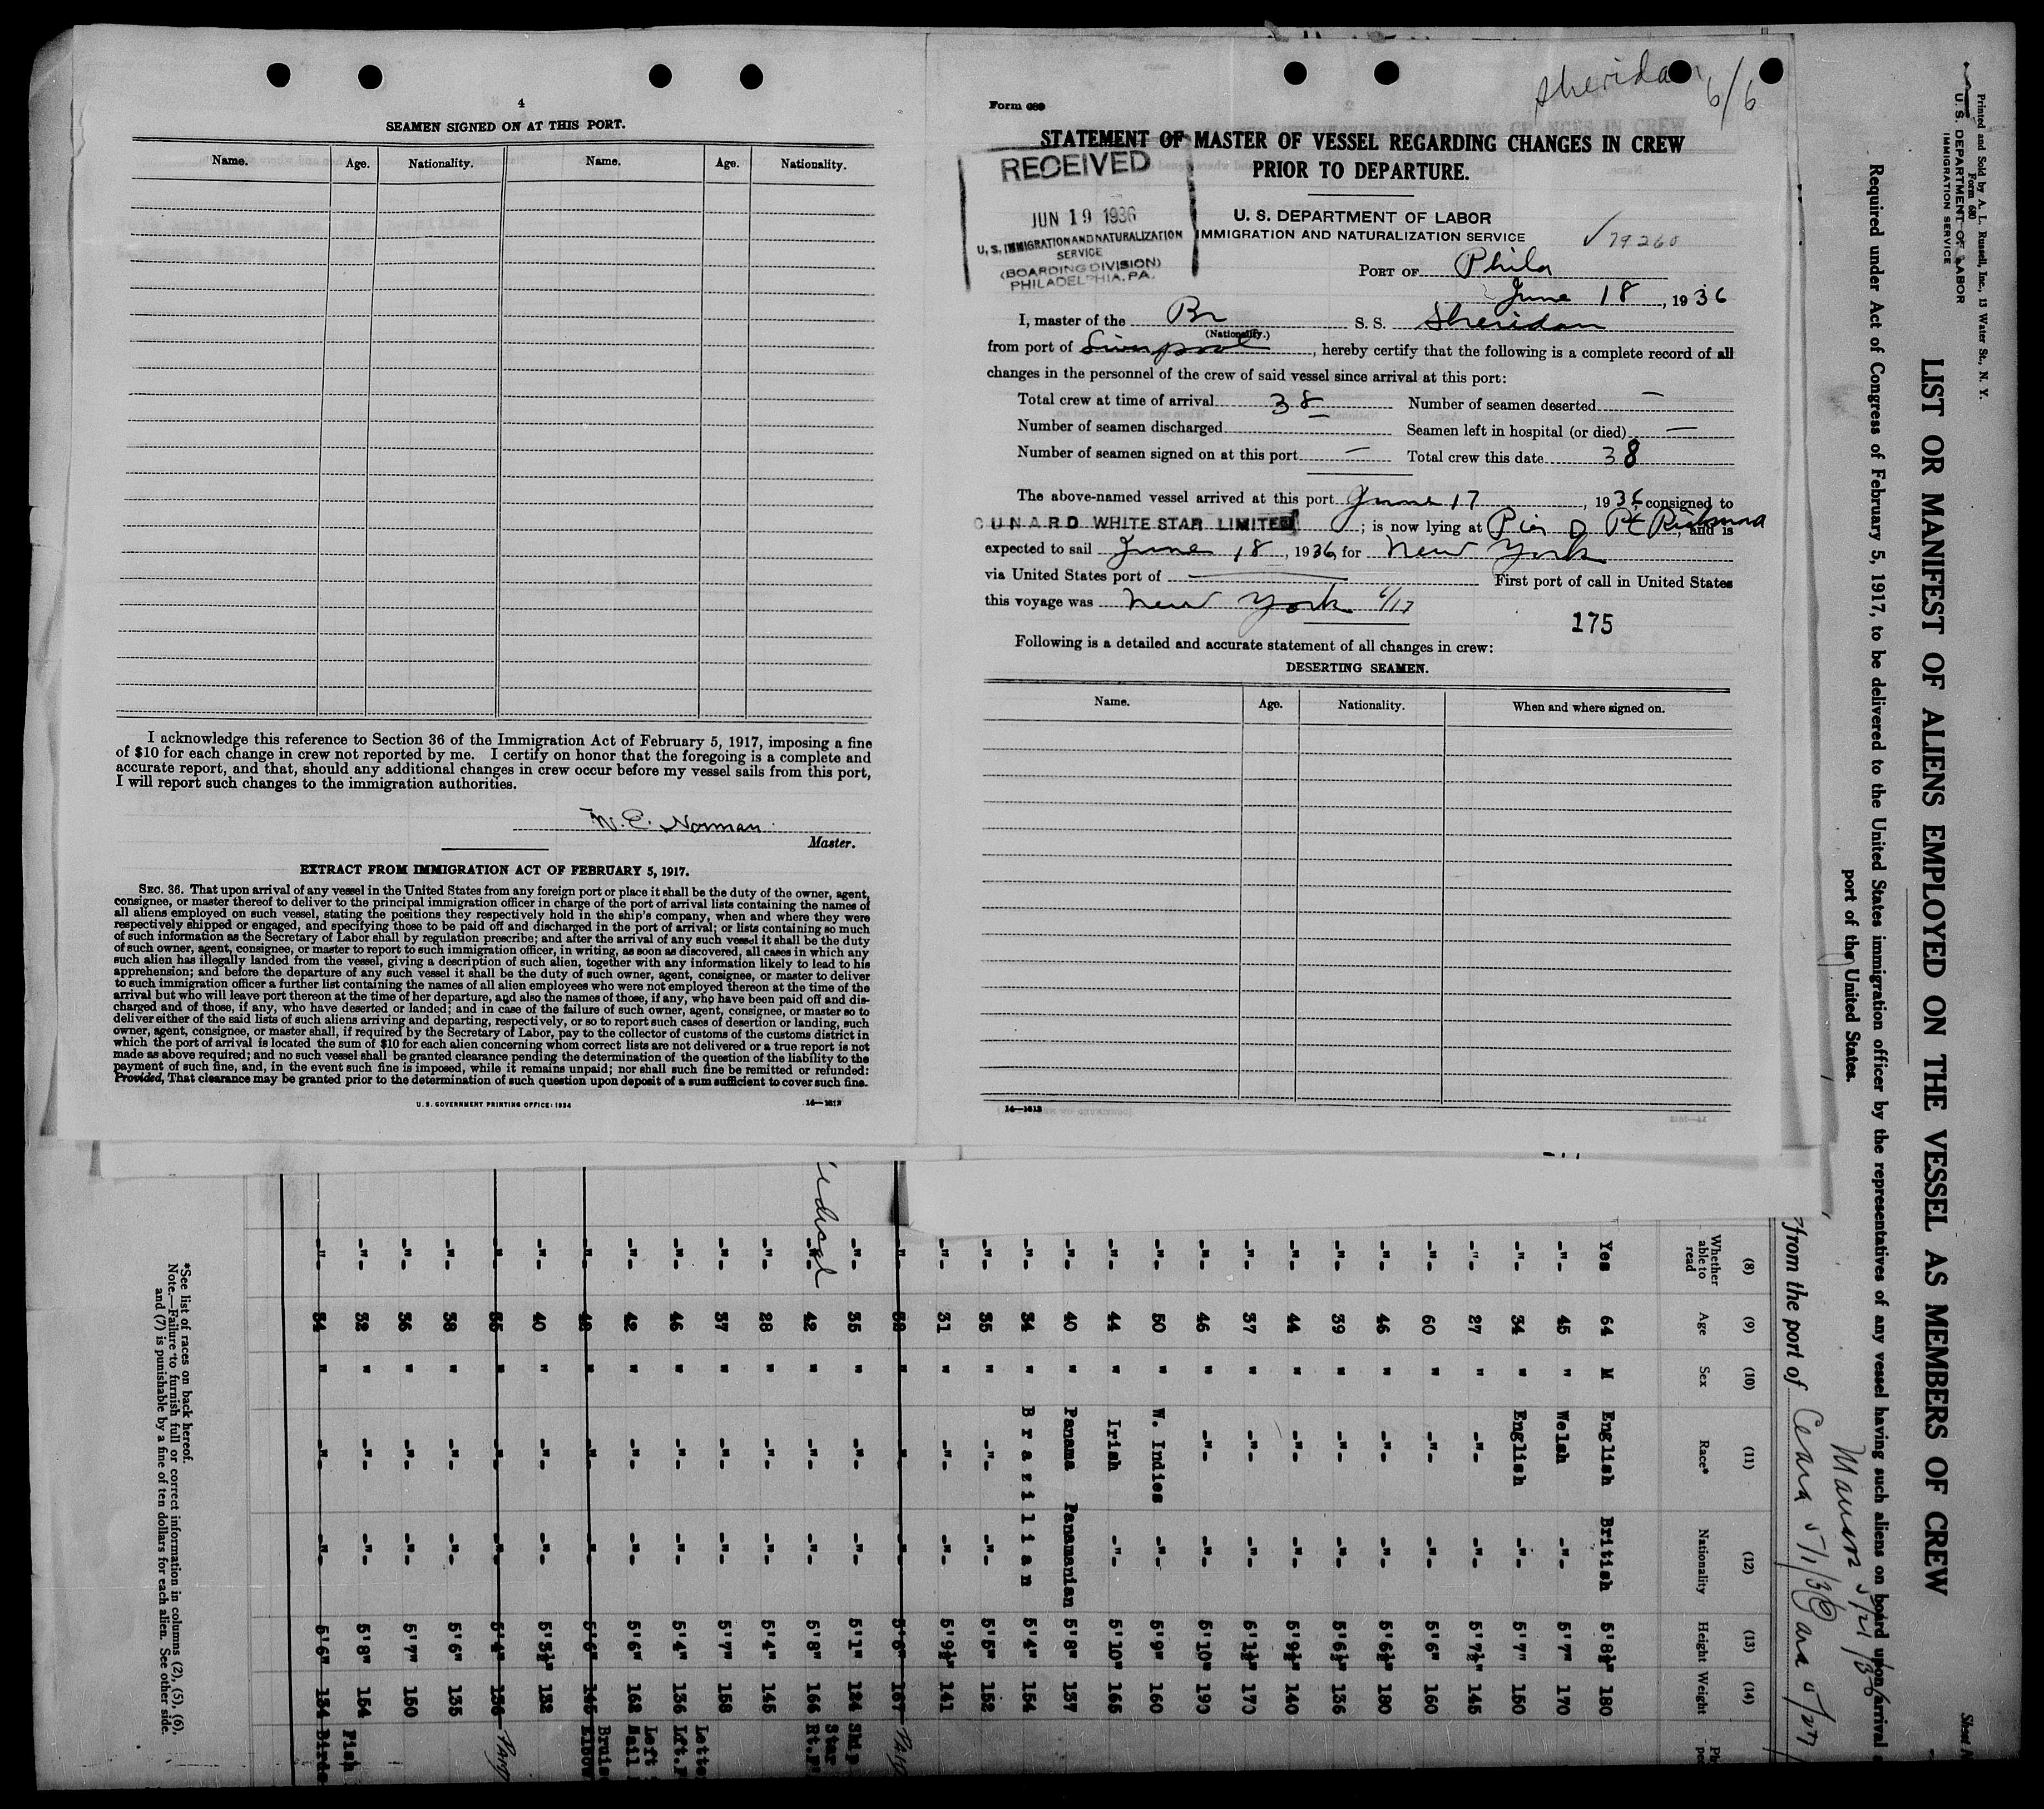 4
SEAMEN SIGNED ON AT THIS PORT.
Name. Age. Nationality. Name. Age. Nationality.
I acknowledge this reference to Section 36 of the Immigration Act of February 5, 1917, imposing a fine
of $10 for each change in crew not reported by me. I certify on honor that the foregoing is a complete and
accurate report, and that, should any additional changes in crew occur before my vessel sails from this port,
I will report such changes to the immigration authorities.
W. E. Norman
Master.
EXTRACT FROM IMMIGRATION ACT OF FEBRUARY 5, 1917.
SEC. 36. That upon arrival of any vessel in the United States from any foreign port or place it shall be the duty of the owner, agent,
consignee, or master thereof to deliver to the principal immigration officer in charge of the port of arrival lists containing the names of
all aliens employed on such vessel, stating the positions they respectively hold in the ship's company, when and where they were
respectively shipped or engaged, and specifying those to be paid off and discharged in the port of arrival; or lists containing so much
of such information as the Secretary of Labor shall by regulation prescribe; and after the arrival of any such vessel it shall be the duty
of such owner, agent, consignee, or master to report to such immigration officer, in writing, as soon as discovered, all cases in which any
such alien has illegally landed from the vessel, giving a description of such alien, together with any information likely to lead to his
apprehension; and before the departure of any such vessel it shall be the duty of such owner, agent, consignee, or master to deliver
to such immigration officer a further list containing the names of all alien employees who were not employed thereon at the time of the
arrival but who will leave port thereon at the time of her departure, and also the names of those, if any, who have been paid off and dis-
charged and of those, if any, who have deserted or landed; and in case of the failure of such owner, agent, consignee, or master so to
deliver either of the said lists of such aliens arriving and departing, respectively, or so to report such cases of desertion or landing, such
owner, agent, consignee, or master shall, if required by the Secretary of Labor, pay to the collector of customs of the customs district in
which the port of arrival is located the sum of $10 for each alien concerning whom correct lists are not delivered or a true report is not
made as above required; and no such vessel shall be granted clearance pending the determination of the question of the liability to the
payment of such fine, and, in the event such fine is imposed, while it remains unpaid; nor shall such fine be remitted or refunded:
Provided, That clearance may be granted prior to the determination of such question upon deposit of a sum sufficient to cover such fine.
U. S. GOVERNMENT PRINTING OFFICE: 1934 14—1613
Sheridan 6/6
Form 689
STATEMENT OF MASTER OF VESSEL REGARDING CHANGES IN CREW
PRIOR TO DEPARTURE.
RECEIVED
JUN 19 1936
U. S. IMMIGRATION AND NATURALIZATION
SERVICE
(BOARDING DIVISION)
PHILADELPHIA, PA.
U. S. DEPARTMENT OF LABOR
IMMIGRATION AND NATURALIZATION SERVICE
✓ 79260
PORT OF Phila
June 18, 1936
I, master of the Br S. S. Sheridan
(Nationality.)
from port of Liverpool, hereby certify that the following is a complete record of all
changes in the personnel of the crew of said vessel since arrival at this port:
Total crew at time of arrival 38 Number of seamen deserted —
Number of seamen discharged Seamen left in hospital (or died) —
Number of seamen signed on at this port — Total crew this date 38
The above-named vessel arrived at this port June 17, 1936, consigned to
CUNARD WHITE STAR LIMITED; is now lying at Pier D Pt Richmond, and is
expected to sail June 18, 1936 for New York
via United States port of — First port of call in United States
this voyage was New York 6/17
175
Following is a detailed and accurate statement of all changes in crew:
DESERTING SEAMEN.
Name. Age. Nationality. When and where signed on.
14—1613
Printed and Sold by A. L. Russell, Inc., 13 Water St., N. Y.
Form 680
U. S. DEPARTMENT OF LABOR
IMMIGRATION SERVICE
LIST OR MANIFEST OF ALIENS EMPLOYED ON THE VESSEL AS MEMBERS OF CREW
Required under Act of Congress of February 5, 1917, to be delivered to the United States immigration officer by the representatives of any vessel having such aliens on board upon arrival
port of the United States.
from the port of Ceara 5/1/36
(8) (9) (10) (11) (12) (13) (14)
Whether able to read Age Sex Race* Nationality Height Weight
Yes 64 M English British 5'8½" 180
-"- 45 " Welsh -"- 5'7" 170
-"- 34 " English -"- 5'7" 150
-"- 27 " -"- -"- 5'7½" 145
-"- 60 " -"- -"- 5'6" 160
-"- 46 " -"- -"- 5'6½" 180
-"- 39 " -"- -"- 5'6½" 136
-"- 44 " -"- -"- 5'9½" 140
-"- 37 " -"- -"- 6'1½" 170
-"- 46 " -"- -"- 5'10" 190
-"- 50 " W. Indies -"- 5'9" 160
-"- 44 " Irish -"- 5'10" 165
-"- 40 " Panama Panamanian 5'8" 137
-"- 34 " Brazilian 5'4" 154
-"- 35 " -"- -"- 5'5" 152
-"- 31 " -"- -"- 5'9½" 141
-"- 38 " -"- -"- 5'6" 167
-"- 35 " -"- -"- 5'1" 124 Ship
Star
-"- 42 " -"- -"- 5'8" 166 Rt.
-"- 28 " -"- -"- 5'4" 145
-"- 37 " -"- -"- 5'7" 158
Lette
-"- 46 " -"- -"- 5'4" 136 Lft.
Left
-"- 42 " -"- -"- 5'6" 168 Nail
Bruise
-"- 48 " -"- -"- 5'6" 145 Elbow
-"- 40 " -"- -"- 5'3½" 132
-"- 35 " -"- -"- 5'4" 136
-"- 38 " -"- -"- 5'6" 135
-"- 36 " -"- -"- 5'7" 150
-"- 32 " -"- -"- 5'8" 154 Fish
-"- 34 " -"- -"- 5'6" 134 Birds
*See list of races on back hereof.
Note.—Failure to furnish full or correct information in columns (2), (5), (6),
and (7) is punishable by a fine of ten dollars for each alien. See other side.